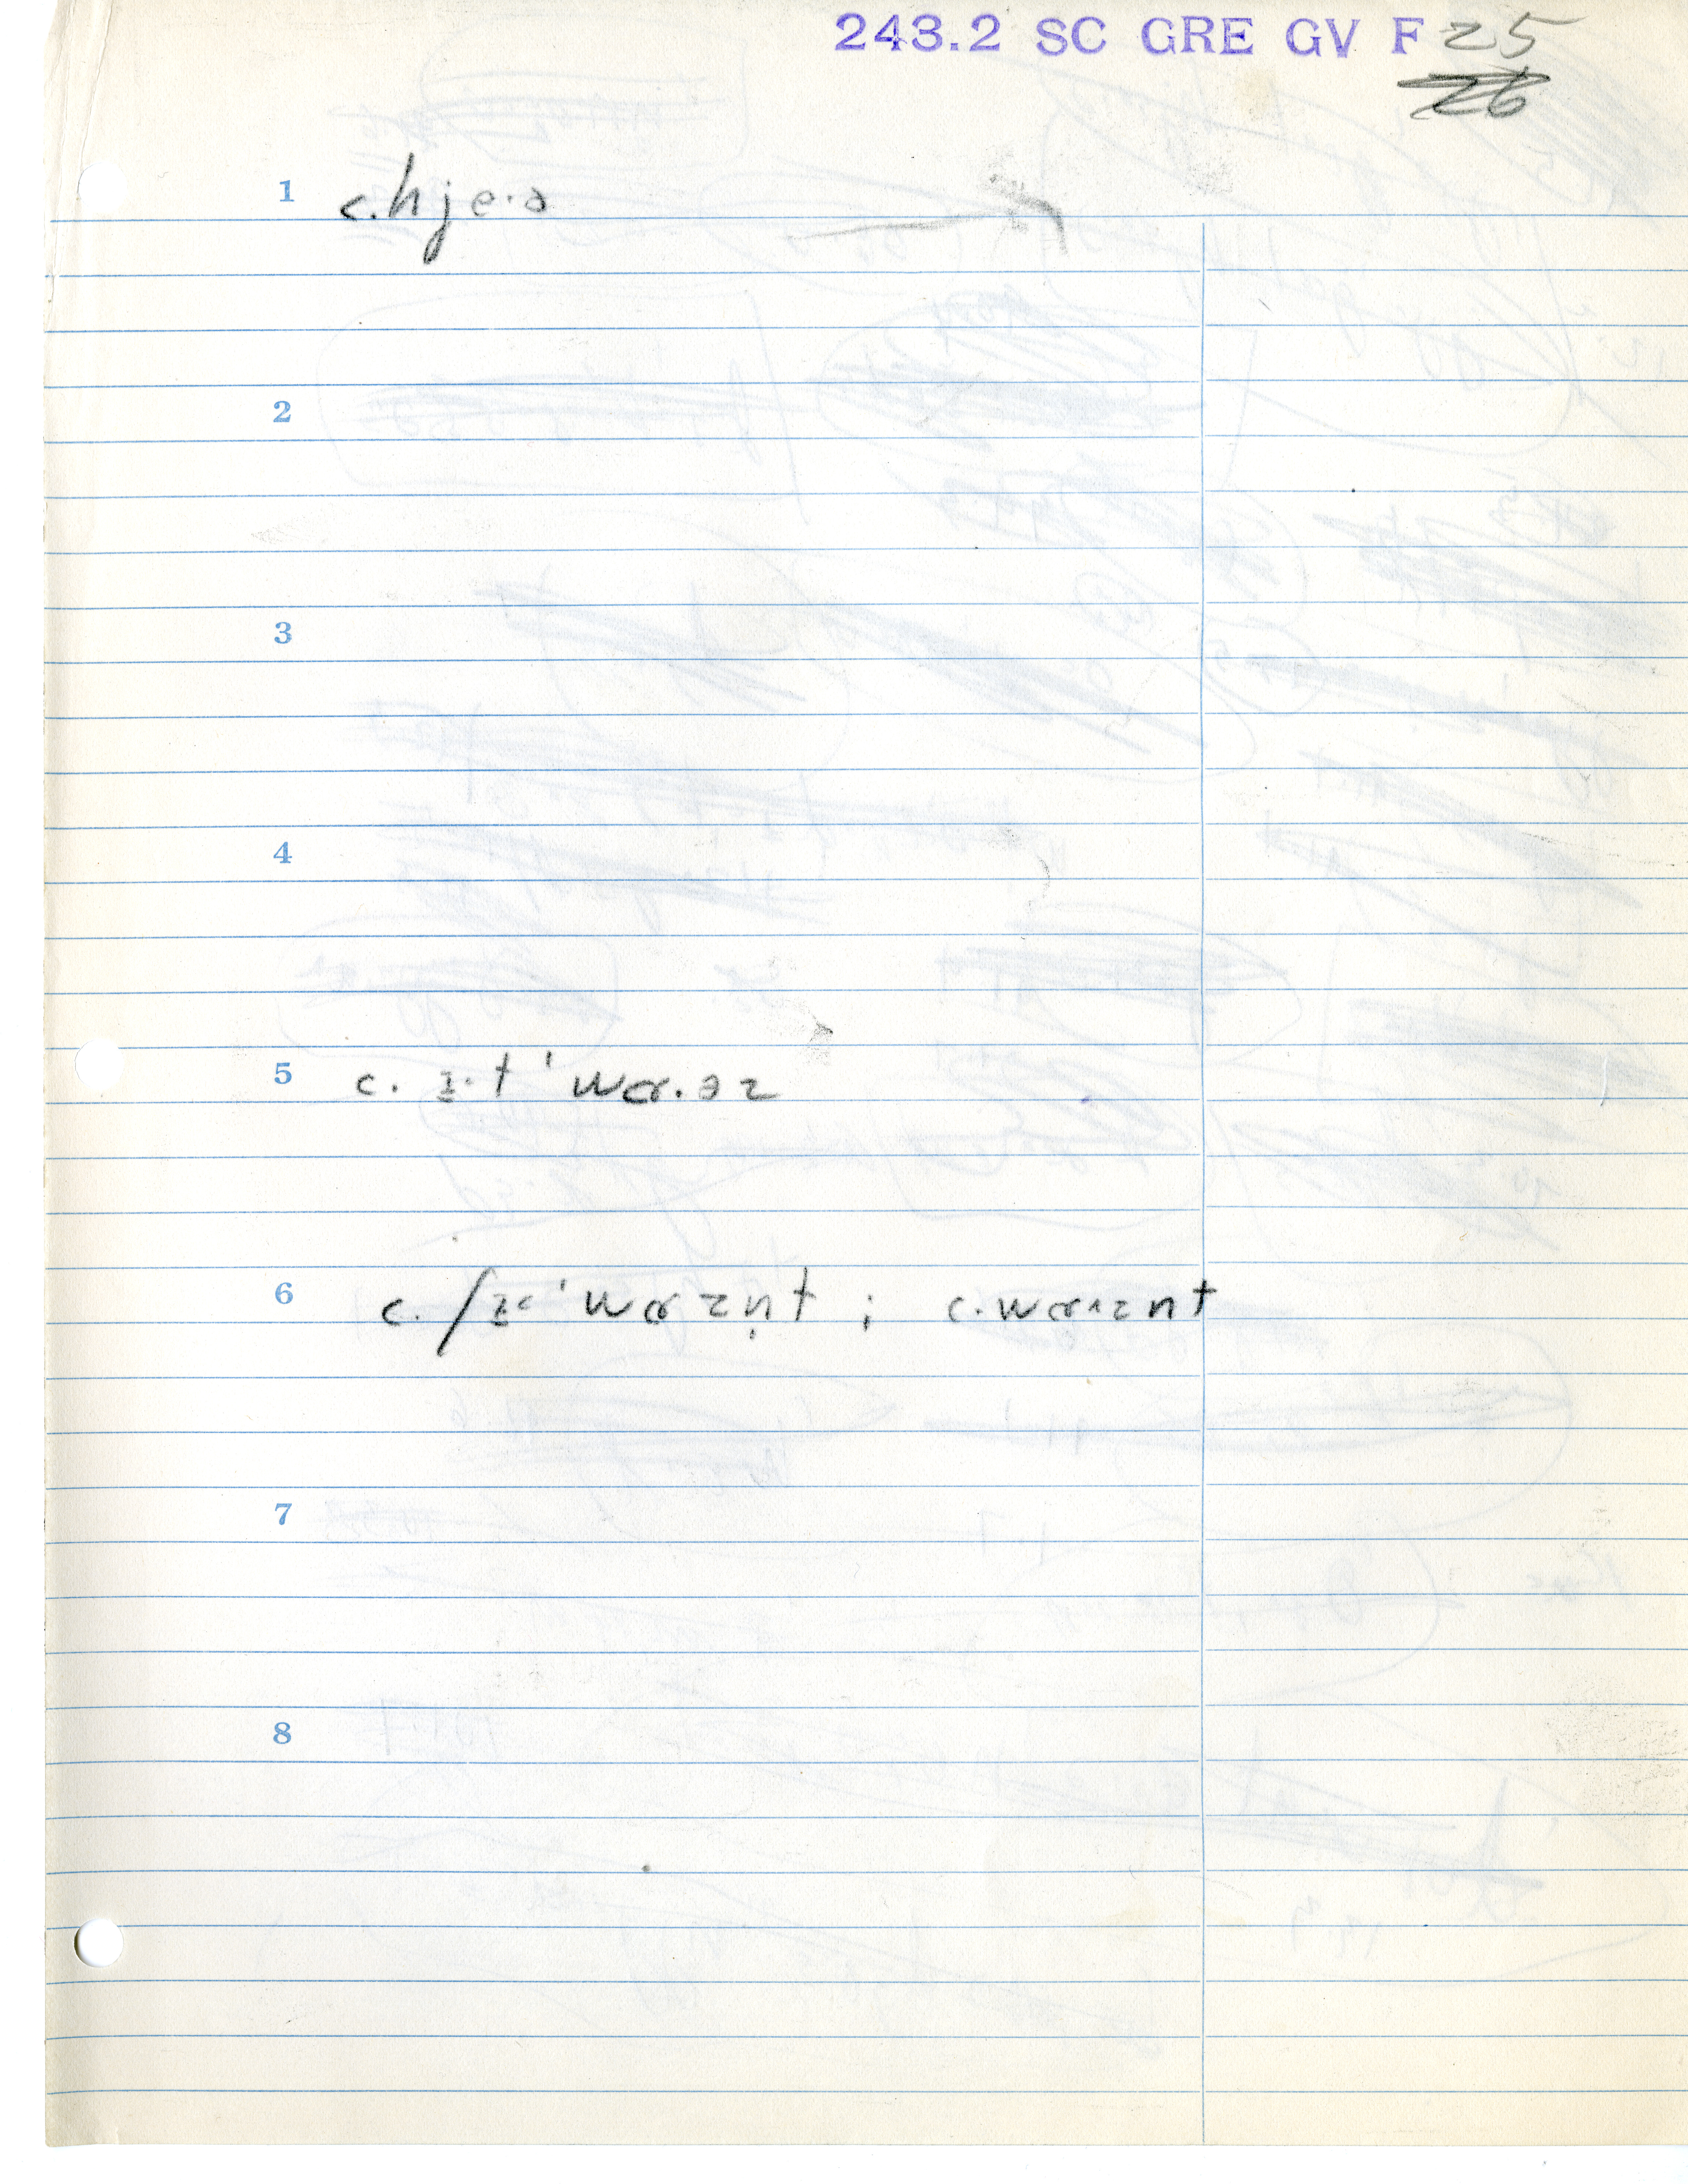 243.2 SC GRE GV F 25
26
1 c. hjɛ·ə
2
3
4
5 c. ɪ·t ˈwɑ·əz
6 c. ʃɪˑ ˈwɑzn̩t ; c. wɑ^znt
7
8